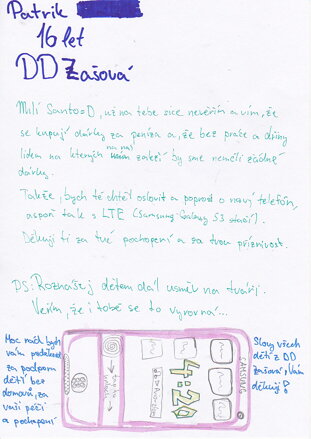 Patrik
16 let
DD Zašová
Milí SantooD, už na tebe sice nevěřím a vím, že
se kupují dárky za peníze a, že bez práce a dřiny
lidem na kterých nám záleží by sme neměli žádné
dárky.
Takže, bych tě chtěl oslovit a poprosit o nový telefón,
aspoň tak s LTE (Samsung Galaxy S3 stačí).
Děkuji ti za tvé pochopení a za tvou příznivost.
PS: Roznášej dětem dál usměv na tváři.
Věřím, že i tobě se to vyrovná...
Moc rádi bych
vám poděkoval
za podporu
dětí bez
domova, za
vaši péči
a pochopení
4:20
SAMSUNG
Slovy všech
dětí z DD
Zašová, Vám
děkuji!